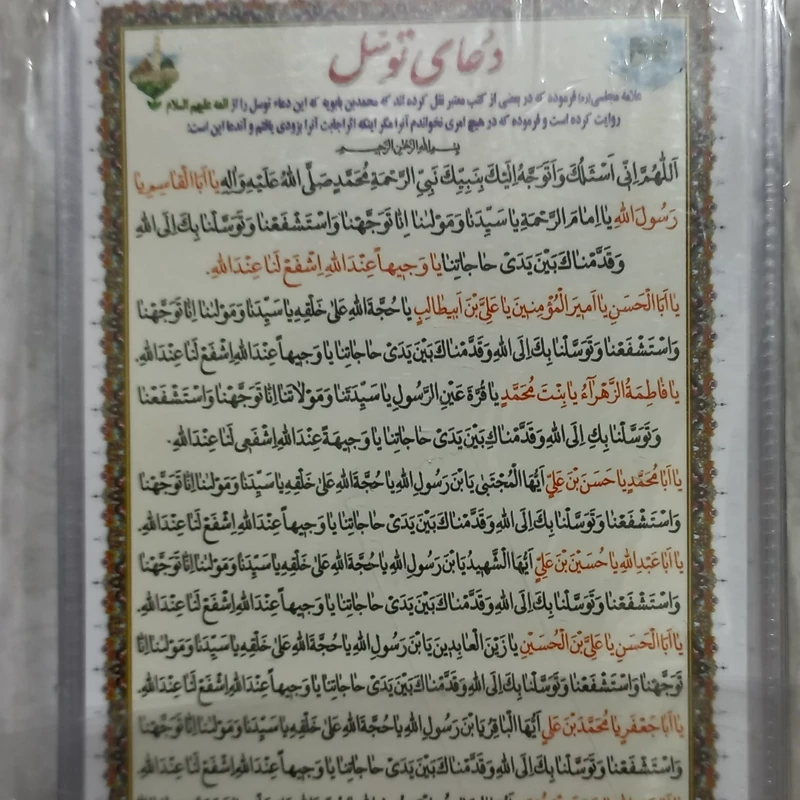 دعای توسل
علامه مجلسی(ره) فرموده که در بعضی از کتب معتبر نقل کرده اند که محمدبن بابویه که این دعاء توسل را از ائمه علیهم السلام
روایت کرده است و فرموده که در هیچ امری نخواندم آنرا مگر اینکه اثر اجابت آنرا بزودی یافتم و آندعا این است:
بسم الله الرحمن الرحیم
اَللّٰهُمَّ اِنّی اَسْئَلُكَ وَاَتَوَجَّهُ اِلَيْكَ بِنَبِيِّكَ نَبِيِّ الرَّحْمَةِ مُحَمَّدٍ صَلَّى اللهُ عَلَيْهِ وَآلِهِ يا اَبَا الْقاسِمِ يا
رَسُولَ اللهِ يا اِمامَ الرَّحْمَةِ يا سَيِّدَنا وَمَوْلٰنا اِنّا تَوَجَّهْنا وَاسْتَشْفَعْنا وَتَوَسَّلْنا بِكَ اِلَى اللهِ
وَقَدَّمْناكَ بَيْنَ يَدَىْ حاجاتِنا يا وَجيهاً عِنْدَ اللهِ اِشْفَعْ لَنا عِنْدَ اللهِ.
يا اَبَا الْحَسَنِ يا اَميرَ الْمُؤْمِنينَ يا عَلِىَّ بْنَ اَبيطالِبٍ يا حُجَّةَ اللهِ عَلىٰ خَلْقِهِ يا سَيِّدَنا وَمَوْلٰنا اِنّا تَوَجَّهْنا
وَاسْتَشْفَعْنا وَتَوَسَّلْنا بِكَ اِلَى اللهِ وَقَدَّمْناكَ بَيْنَ يَدَىْ حاجاتِنا يا وَجيهاً عِنْدَ اللهِ اِشْفَعْ لَنا عِنْدَ اللهِ.
يا فاطِمَةُ الزَّهْرآءُ يا بِنْتَ مُحَمَّدٍ يا قُرَّةَ عَيْنِ الرَّسُولِ يا سَيِّدَتَنا وَمَوْلاتَنا اِنّا تَوَجَّهْنا وَاسْتَشْفَعْنا
وَتَوَسَّلْنا بِكِ اِلَى اللهِ وَقَدَّمْناكِ بَيْنَ يَدَىْ حاجاتِنا يا وَجيهَةً عِنْدَ اللهِ اِشْفَعى لَنا عِنْدَ اللهِ.
يا اَبا مُحَمَّدٍ يا حَسَنَ بْنَ عَلِيٍّ اَيُّهَا الْمُجْتَبىٰ يَا بْنَ رَسُولِ اللهِ يا حُجَّةَ اللهِ عَلىٰ خَلْقِهِ يا سَيِّدَنا وَمَوْلٰنا اِنّا تَوَجَّهْنا
وَاسْتَشْفَعْنا وَتَوَسَّلْنا بِكَ اِلَى اللهِ وَقَدَّمْناكَ بَيْنَ يَدَىْ حاجاتِنا يا وَجيهاً عِنْدَ اللهِ اِشْفَعْ لَنا عِنْدَ اللهِ.
يا اَبا عَبْدِ اللهِ يا حُسَيْنَ بْنَ عَلِيٍّ اَيُّهَا الشَّهيدُ يَا بْنَ رَسُولِ اللهِ يا حُجَّةَ اللهِ عَلىٰ خَلْقِهِ يا سَيِّدَنا وَمَوْلٰنا اِنّا تَوَجَّهْنا
وَاسْتَشْفَعْنا وَتَوَسَّلْنا بِكَ اِلَى اللهِ وَقَدَّمْناكَ بَيْنَ يَدَىْ حاجاتِنا يا وَجيهاً عِنْدَ اللهِ اِشْفَعْ لَنا عِنْدَ اللهِ.
يا اَبَا الْحَسَنِ يا عَلِيَّ بْنَ الْحُسَيْنِ يا زَيْنَ الْعابِدينَ يَا بْنَ رَسُولِ اللهِ يا حُجَّةَ اللهِ عَلىٰ خَلْقِهِ يا سَيِّدَنا وَمَوْلٰنا اِنّا
تَوَجَّهْنا وَاسْتَشْفَعْنا وَتَوَسَّلْنا بِكَ اِلَى اللهِ وَقَدَّمْناكَ بَيْنَ يَدَىْ حاجاتِنا يا وَجيهاً عِنْدَ اللهِ اِشْفَعْ لَنا عِنْدَ اللهِ.
يا اَبا جَعْفَرٍ يا مُحَمَّدَ بْنَ عَلِيٍّ اَيُّهَا الْباقِرُ يَا بْنَ رَسُولِ اللهِ يا حُجَّةَ اللهِ عَلىٰ خَلْقِهِ يا سَيِّدَنا وَمَوْلٰنا اِنّا تَوَجَّهْنا
وَاسْتَشْفَعْنا وَتَوَسَّلْنا بِكَ اِلَى اللهِ وَقَدَّمْناكَ بَيْنَ يَدَىْ حاجاتِنا يا وَجيهاً عِنْدَ اللهِ اِشْفَعْ لَنا عِنْدَ اللهِ.